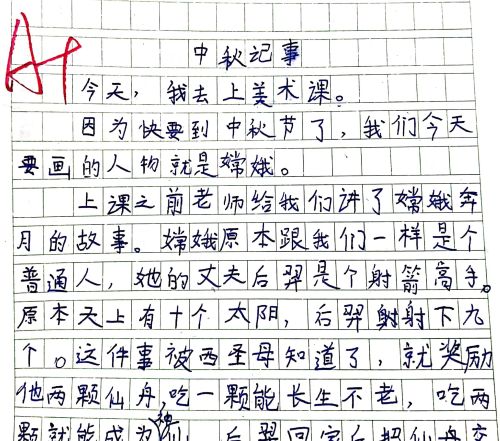 A+
中秋记事
今天，我去上美术课。
因为快要到中秋节了，我们今天
要画的人物就是嫦娥。
上课之前老师给我们讲了嫦娥奔
月的故事。嫦娥原本跟我们一样是个
普通人，她的丈夫后羿是个射箭高手。
原本天上有十个太阳，后羿射射下九
个。这件事被西圣母知道了，就奖励
他两颗仙丹，吃一颗能长生不老，吃两
颗就能成为神仙。后羿回家后把仙丹交